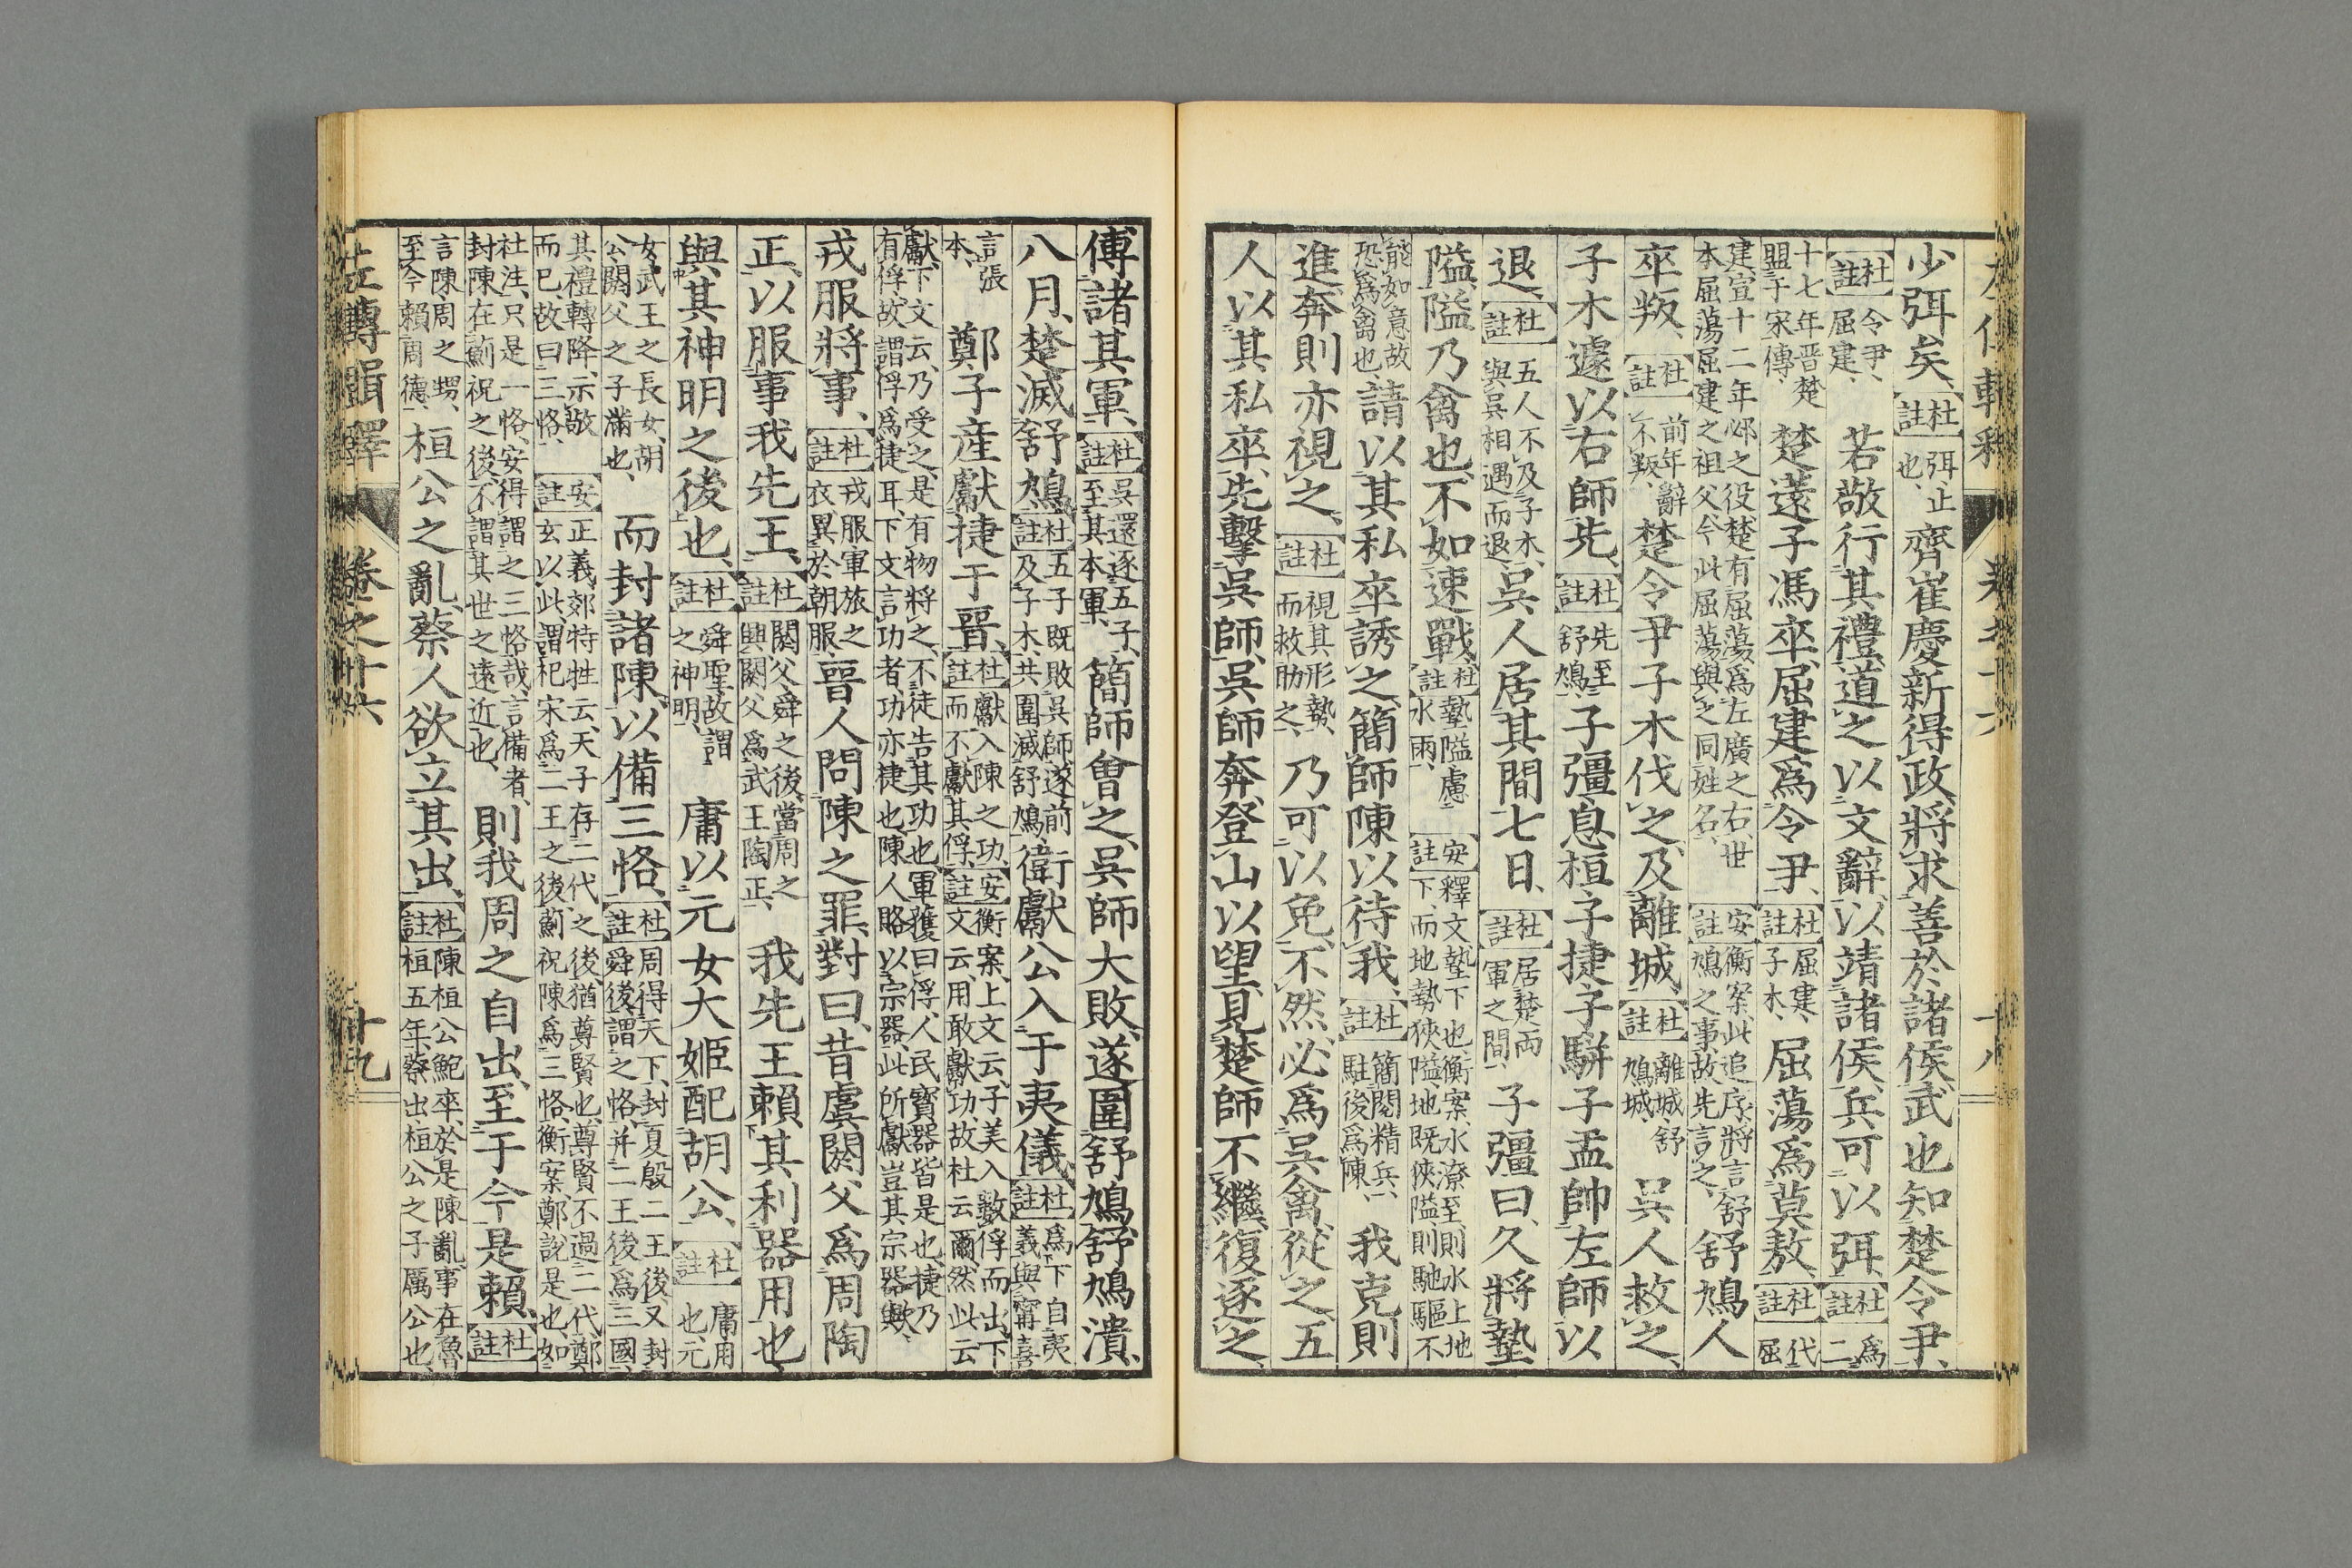 左傳輯釋 卷之十六 十八
少弭矣、杜註弭、止也、齊崔慶新得政、將求善於諸侯、武也知楚令尹、
杜註令尹、屈建、若敬行其禮、道之以文辭、以靖諸侯、兵可以弭、杜註為二
十七年晉楚盟于宋傳、楚薳子馮卒、屈建爲令尹、杜註屈建、子木、屈蕩爲莫敖、杜註代屈
建、宣十二年邲之役、楚有屈蕩、爲左廣之右、世本屈蕩屈建之祖父、今此屈蕩與之同姓名、安註衡案、此追序、將言舒鳩之事、故先言之、舒鳩人
卒叛、杜註前年辭不叛、楚令尹子木伐之、及離城、杜註離城、舒鳩城、吳人救之、
子木遽以右師先、杜註先至舒鳩、子彊息桓子捷子駢子盂帥左師以
退、杜註五人不及子木、與吳相遇而退、吳人居其間七日、杜註居楚兩軍之間、子彊曰、久將墊
隘、隘乃禽也、不如速戰、杜註墊隘、慮水雨、安註釋文、墊、下也、衡案、水潦至、則水上地下、而地勢狹隘、地既狹隘、則馳驅不
能如意、故恐爲禽也、請以其私卒誘之、簡師陳以待我、杜註簡閱精兵、駐後爲陳、我克則
進、奔則亦視之、杜註視其形勢、而救助之、乃可以免、不然、必爲吳禽、從之、五
人以其私卒、先擊吳師、吳師奔、登山以望、見楚師不繼、復逐之、
傅諸其軍、杜註吳還逐五子、至其本軍、簡師會之、吳師大敗、遂圍舒鳩、舒鳩潰、
八月、楚滅舒鳩、杜註五子既敗吳師、遂前及子木、共圍滅舒鳩、衛獻公入于夷儀、杜註爲下自夷儀與甯喜
言張本、鄭子產獻捷于晉、杜註獻入陳之功、而不獻其俘、安註衡案、上文云、子美入、數俘而出、下文云、用敢獻功、故杜云爾、然此云
獻、下文云、乃受之、是有物將之、不徒告其功也、軍獲曰俘、人民寶器皆是也、捷乃有俘、故謂俘爲捷耳、下文言功者、功亦捷也、陳人賂以宗器、此所獻豈其宗器與歟、
戎服將事、杜註戎服、軍旅之衣、異於朝服、晉人問陳之罪、對曰、昔虞閼父爲周陶
正、以服事我先王、杜註閼父、舜之後、當周之興、閼父爲武王陶正、我先王賴其利器用也、
與其神明之後也、杜註舜聖、故謂之神明、庸以元女大姬配胡公、杜註庸、用也、元
女、武王之長女、胡公、閼父之子滿也、而封諸陳、以備三恪、杜註周得天下、封夏殷二王後、又封舜後、謂之恪、并二王後爲三國、
其禮轉降、示敬而已、故曰三恪、安註正義、郊特牲云、天子存二代之後、猶尊賢也、尊賢不過二代、鄭玄以此、謂杞宋爲二王之後、薊祝陳爲三恪、衡案、鄭說是也、如
杜注、只是一恪、安得謂之三恪哉、言備者、封陳在薊祝之後、不謂其世之遠近也、則我周之自出、至于今是賴、杜註
言陳、周之甥、至今賴周德、桓公之亂、蔡人欲立其出、杜註陳桓公鮑卒、於是陳亂、事在魯桓五年、蔡出、桓公之子厲公也、
左傳輯釋 卷之十六 十九